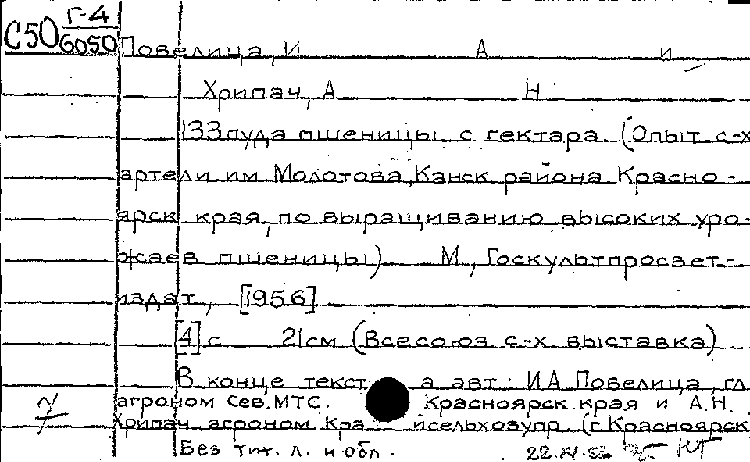 С50 Г-4
6050 Повелица, И А и
Хрипач, А Н
133 пуда пшеницы с гектара. (Опыт с-х
артели им Молотова, Канск района Красно-
ярск края, по выращиванию высоких уро-
жаев пшеницы) М., Госкультпросвет-
издат, [1956]
[4] с 21 см (Всесоюз с-х выставка)
В конце текст а авт: И.А. Повелица, гл.
агроном Сев. МТС. Красноярск. края и А.Н.
Хрипач агроном Кра исельхозупр. (г. Красноярск
Без тит. л. и обл.